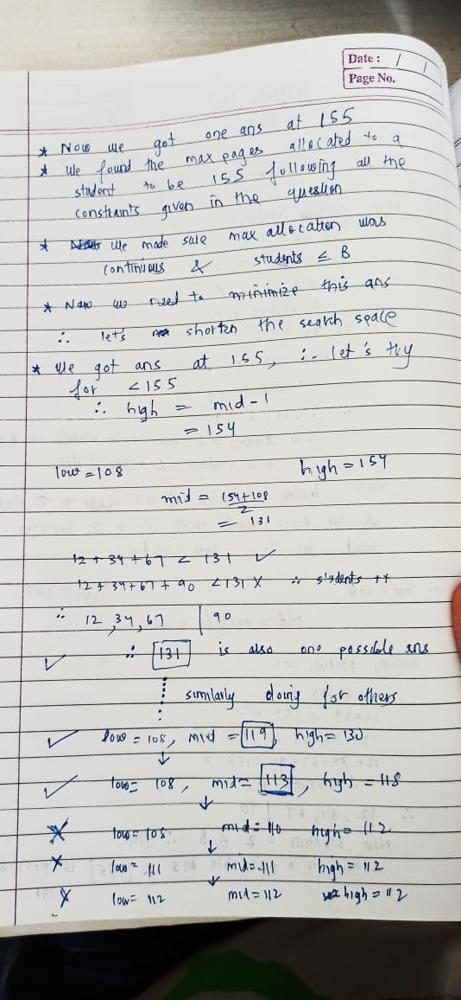 Date : / /
Page No.
* Now we got one ans at 155
* we found the max pages allocated to a
student to be 155 following all the
constraints given in the question
* we made sure max allocation was
continious & students ≤ B
* Now we need to minimize this ans
∴ let's shorten the search space
* We got ans at 155, ∴ let's try
for < 155
∴ high = mid - 1
= 154
low = 108 high = 154
mid = (154+108)/2
= 131
12 + 34 + 67 < 131 ✓
12 + 34 + 67 + 90 < 131 X ∴ students ++
∴ 12, 34, 67 | 90
✓ ∴ 131 is also one possible ans
similarly doing for others
✓ low = 108, mid = 119, high = 130
↓
✓ low = 108, mid = 113, high = 118
↓
X low = 108 mid = 110 high = 112
↓
X low = 111 mid = 111 high = 112
↓
X low = 112 mid = 112 high = 112